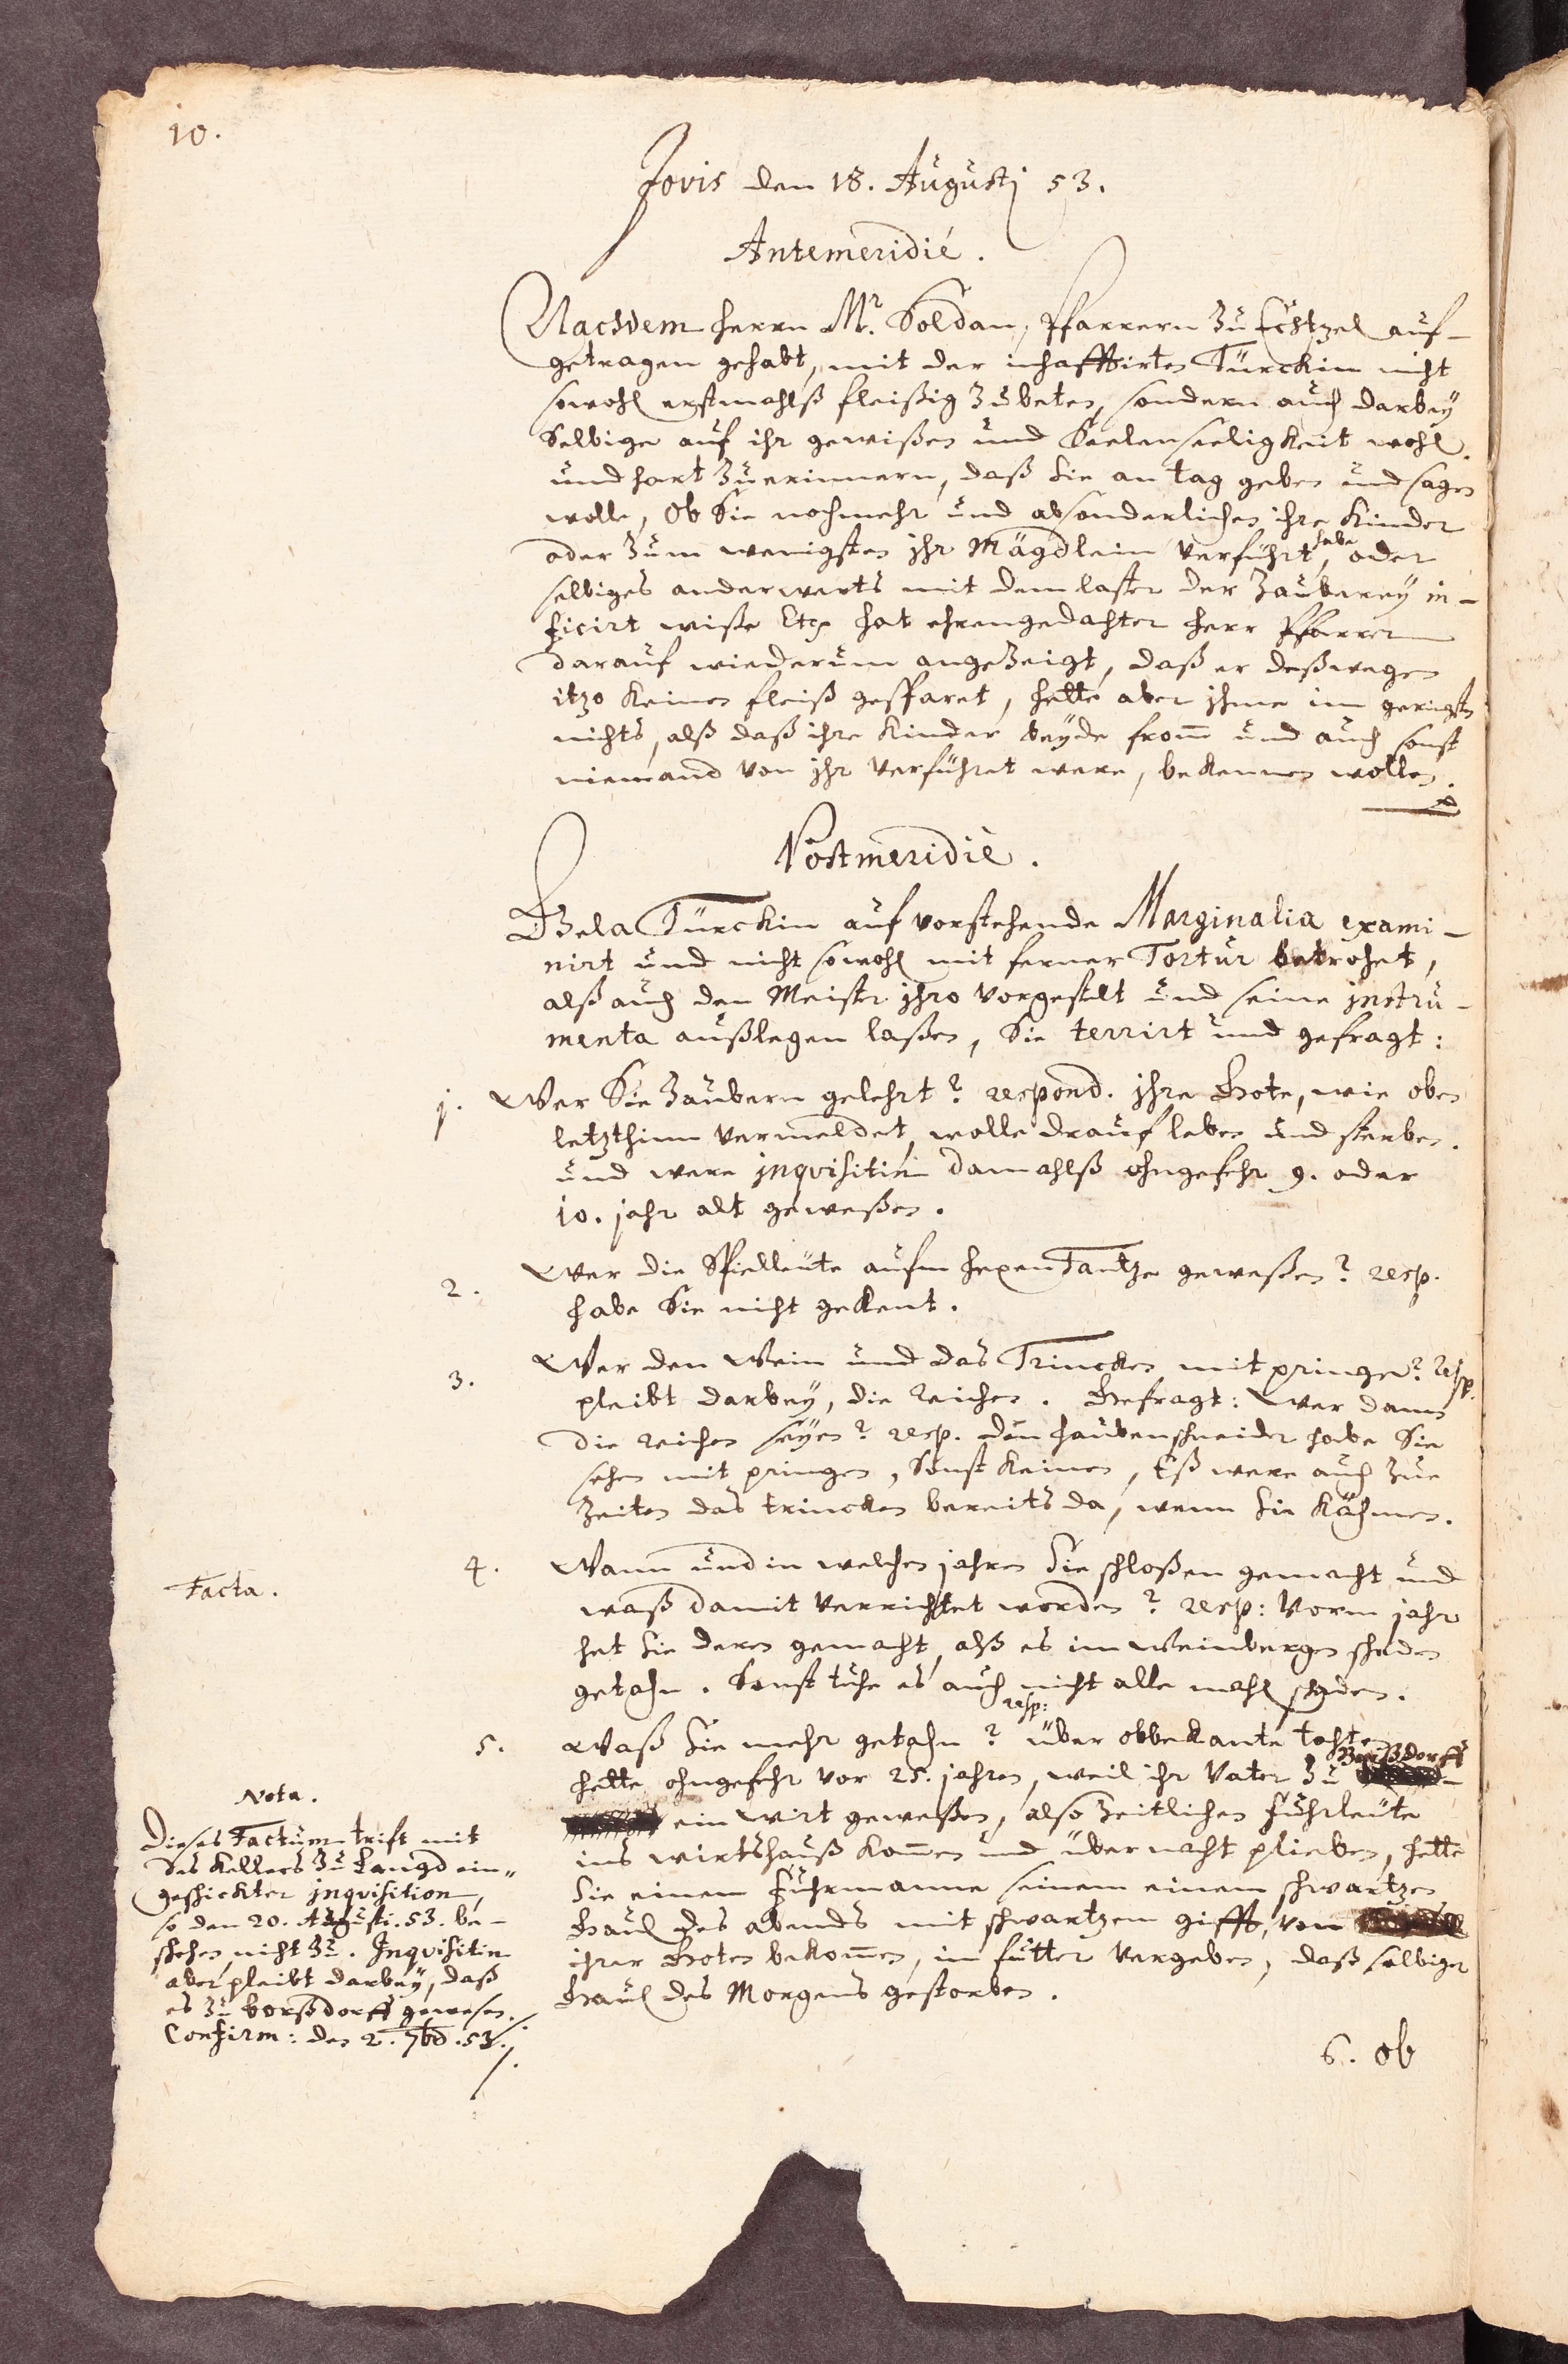 10.
Jovis den 18. Augustj 53.
Antemeridie.
Nachdem Herrn Mr. Soldan, Pfarrern zu Echtzel auf-
getragen gehabt, mit der inhafftirten Türckin nicht
sowohl erstmahlß fleißig zubeten, sondern auch darbey
Selbige auf ihr gewißen und Seelenseeligkeit wohl
und hart zuerinnern, daß Sie an tag geben und sagen
wolle, Ob Sie nochmehr und absonderlichen ihre Kinder
oder zum wenigsten ihr Mägdlein verführt habe, oder
selbiges anderwerts mit dem laster der Zauberey in-
ficirt wiße Etc. hat ehrengedachter Herr Pfarrer
darauf wiederumm angezeigt, daß er deßwegen
itzo keinen fleiß gesparet, hette aber ihme im geringsten
nichts, alß daß ihre Kinder beyde from̄ und auch sonst
niemand von ihr verführet were, bekennen wollen.
Postmeridie.
Bela Türckin auf vorstehende Marginalia exami-
nirt und nicht sowohl mit ferner Tortur betrohet,
alß auch den Meister ihro vorgestelt und seine jnstru-
menta außlegen laßen, Sie territ und gefragt:
1. Wer Sie zaubern gelehrt? respond. ihre Gote, wie oben
letzthinn vermeldet, wolle drauf leben und sterben.
und were jnquisitin damahlß ohngefehr 9. oder
10. jahr alt geweßen.
2. Wer die Spielleute aufm Hexen Tantze geweßen? resp.
habe Sie nicht gekent.
3. Wer den Wein und das Trincken mit pringe? Resp.
pleibt darbey, die Reichen. Gefragt: Wer dann
die reichen seyen? resp. den Haubenschneider habe Sie
sehen mit pringen, Sonst keinen, Eß were auch zue
Zeiten das trincken bereits da, wenn sie kähmen.
4. Wann und in welchen jahren Sie schloßen gemacht und
waß damit verrichtet worden? resp: Vorm jahr
het Sie deren gemacht, alß es im Weinbergen schaden
getahn. Sonst tuhe es auch nicht alle mahl schaden.
Facta.
5. Waß Sie mehr getahn? resp: über obbekante tahten
hette ohngefehr vor 25. jahren, weil ihr Vater zu Borßdorff
ein Wirt geweßen, also zeitlichen Fuhrleute
ins wirtshauß kom̄en und über nacht plieben, hette
Sie einem Fuhrmanne seinem einem schwartzen
Gaul des abends mit schwartzem gifft, von
ihrer Goten bekom̄en, im futter vergeben, daß selbiger
Gaul des Morgens gestorben.
Nota.
Dieses Factum trift mit
des Kellers zu Langd ein-
geschickter jnquisition,
so den 20. Augusti. 53. be-
schehen, nicht zu. Inquisitin
aber pleibt darbey, daß
es zu borßdorff gewesen.
Confirm: den 2. 7bd. 53.
6. Ob